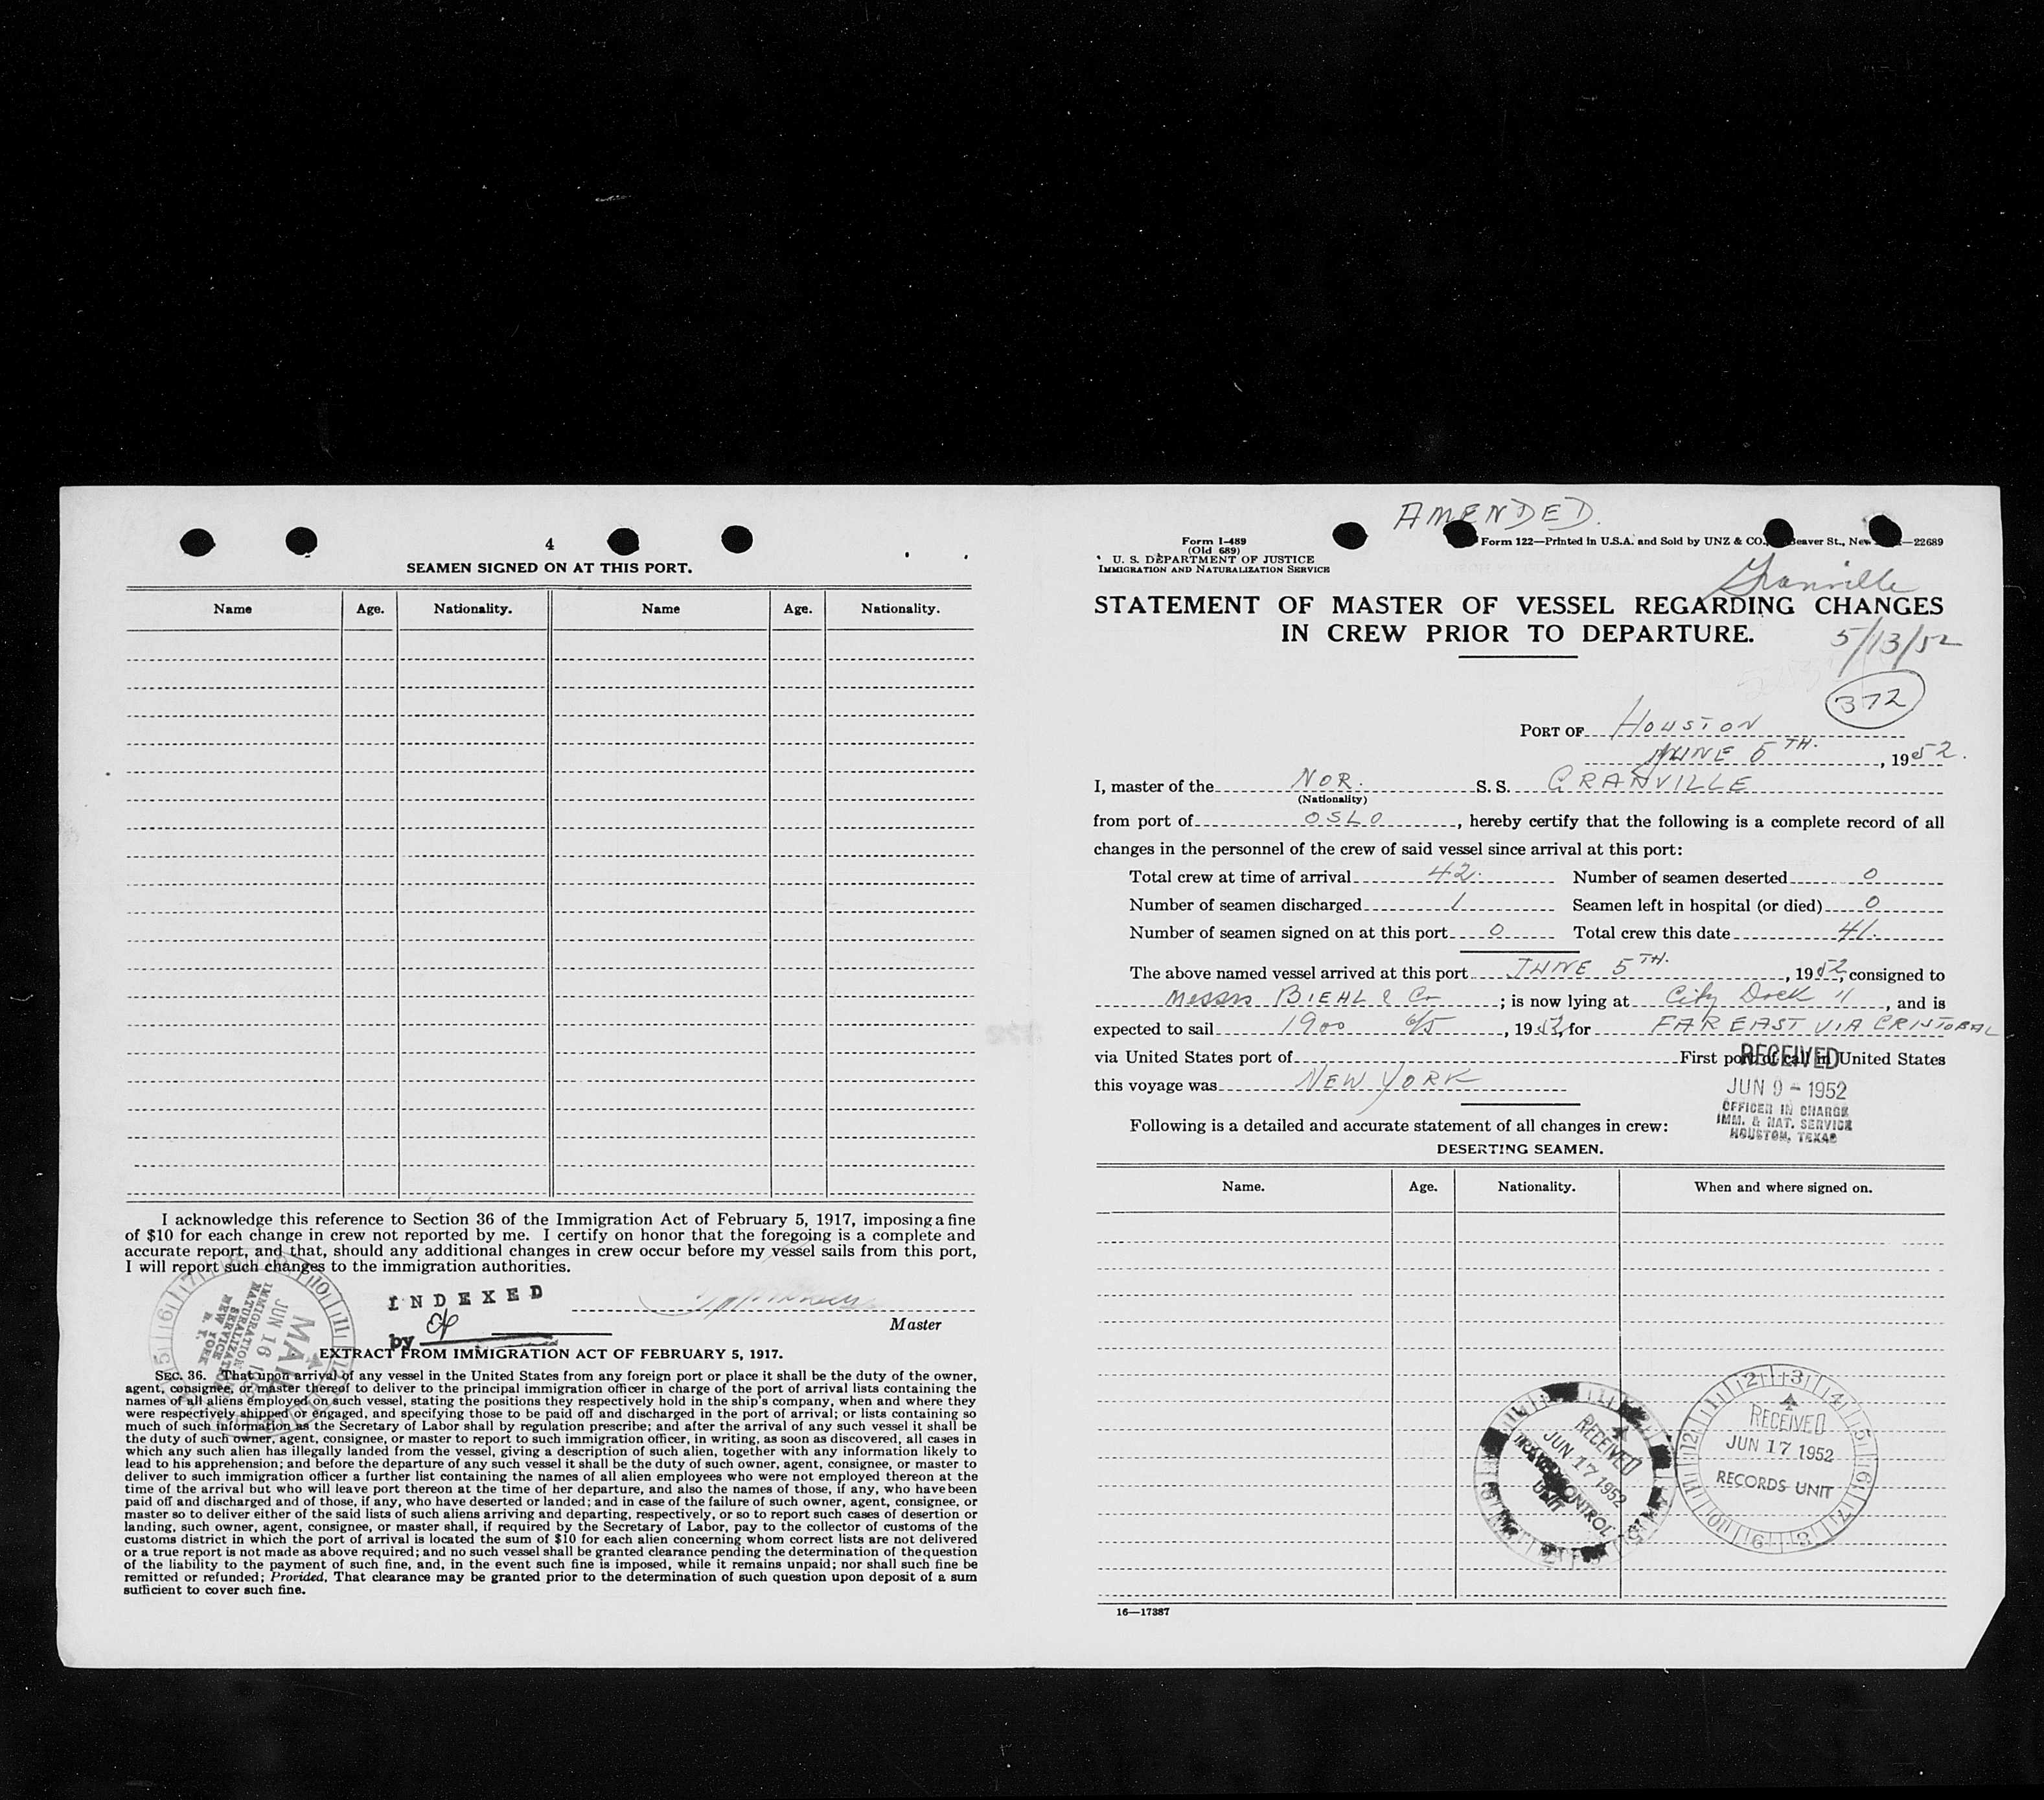 4
SEAMEN SIGNED ON AT THIS PORT.
Name Age. Nationality. Name Age. Nationality.
I acknowledge this reference to Section 36 of the Immigration Act of February 5, 1917, imposing a fine
of $10 for each change in crew not reported by me. I certify on honor that the foregoing is a complete and
accurate report, and that, should any additional changes in crew occur before my vessel sails from this port,
I will report such changes to the immigration authorities.
INDEXED
by
Master
MAIL
JUN 16
IMMIGRATION
NATURALIZATION
SERVICE
NEW YORK
N. Y.
EXTRACT FROM IMMIGRATION ACT OF FEBRUARY 5, 1917.
SEC. 36. That upon arrival of any vessel in the United States from any foreign port or place it shall be the duty of the owner,
agent, consignee, or master thereof to deliver to the principal immigration officer in charge of the port of arrival lists containing the
names of all aliens employed on such vessel, stating the positions they respectively hold in the ship's company, when and where they
were respectively shipped or engaged, and specifying those to be paid off and discharged in the port of arrival; or lists containing so
much of such information as the Secretary of Labor shall by regulation prescribe; and after the arrival of any such vessel it shall be
the duty of such owner, agent, consignee, or master to report to such immigration officer, in writing, as soon as discovered, all cases in
which any such alien has illegally landed from the vessel, giving a description of such alien, together with any information likely to
lead to his apprehension; and before the departure of any such vessel it shall be the duty of such owner, agent, consignee, or master to
deliver to such immigration officer a further list containing the names of all alien employees who were not employed thereon at the
time of the arrival but who will leave port thereon at the time of her departure, and also the names of those, if any, who have been
paid off and discharged and of those, if any, who have deserted or landed; and in case of the failure of such owner, agent, consignee, or
master so to deliver either of the said lists of such aliens arriving and departing, respectively, or so to report such cases of desertion or
landing, such owner, agent, consignee, or master shall, if required by the Secretary of Labor, pay to the collector of customs of the
customs district in which the port of arrival is located the sum of $10 for each alien concerning whom correct lists are not delivered
or a true report is not made as above required; and no such vessel shall be granted clearance pending the determination of the question
of the liability to the payment of such fine, and, in the event such fine is imposed, while it remains unpaid; nor shall such fine be
remitted or refunded; Provided, That clearance may be granted prior to the determination of such question upon deposit of a sum
sufficient to cover such fine.
AMENDED.
Form I-489
(Old 689)
U. S. DEPARTMENT OF JUSTICE
IMMIGRATION AND NATURALIZATION SERVICE
Form 122—Printed in U.S.A. and Sold by UNZ & CO., Beaver St., New —22689
Granville
STATEMENT OF MASTER OF VESSEL REGARDING CHANGES
IN CREW PRIOR TO DEPARTURE.
5/13/52
372
PORT OF HOUSTON
JUNE 5TH. , 1952.
I, master of the NOR. S. S. GRANVILLE
(Nationality)
from port of OSLO , hereby certify that the following is a complete record of all
changes in the personnel of the crew of said vessel since arrival at this port:
Total crew at time of arrival 42. Number of seamen deserted 0
Number of seamen discharged 1 Seamen left in hospital (or died) 0
Number of seamen signed on at this port 0 Total crew this date 41.
The above named vessel arrived at this port JUNE 5TH. , 1952, consigned to
Messrs BIEHL & Co ; is now lying at City Dock 11 , and is
expected to sail 1900 6/5 , 1952, for FAR EAST VIA CRISTOBAL
via United States port of First port of call in United States
this voyage was NEW YORK
RECEIVED
JUN 9 - 1952
OFFICER IN CHARGE
IMM. & NAT. SERVICE
HOUSTON, TEXAS
Following is a detailed and accurate statement of all changes in crew:
DESERTING SEAMEN.
Name. Age. Nationality. When and where signed on.
RECEIVED
JUN 17 1952
CONTROL
UNIT
RECEIVED
JUN 17 1952
RECORDS UNIT
16—17387